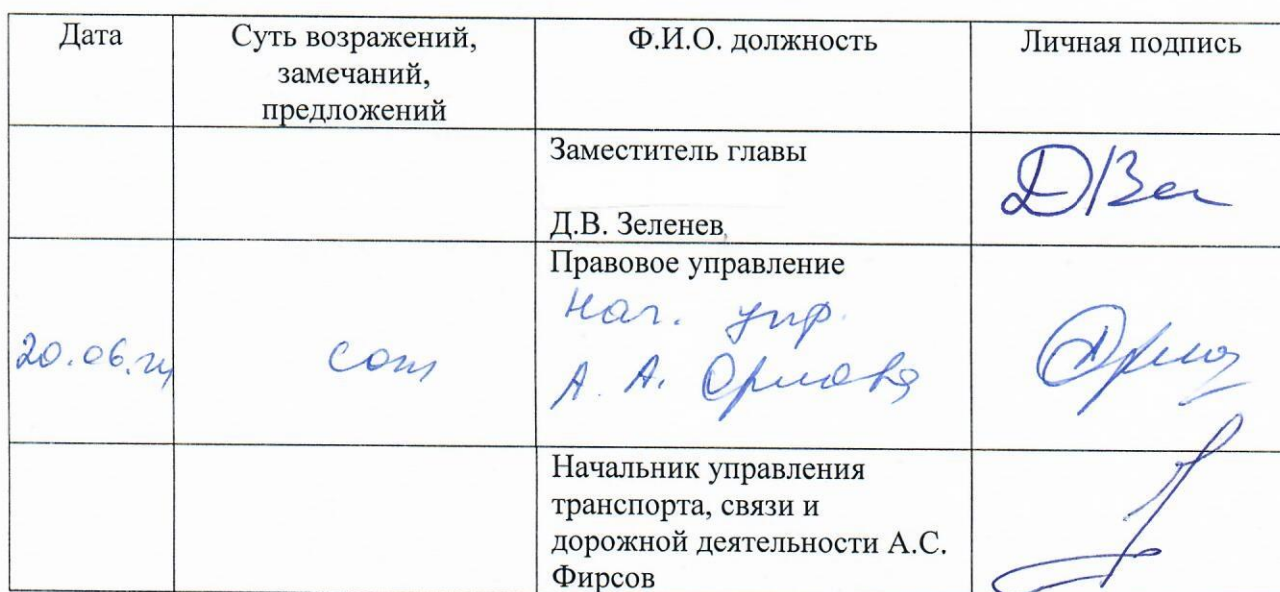 Дата
Суть возражений,
замечаний,
предложений
Ф.И.О. должность
Личная подпись
Заместитель главы
Д.В. Зеленев
Правовое управление
Нач. упр.
20.06.24
А. А. Орлова
Начальник управления
транспорта, связи и
дорожной деятельности А.С.
Фирсов